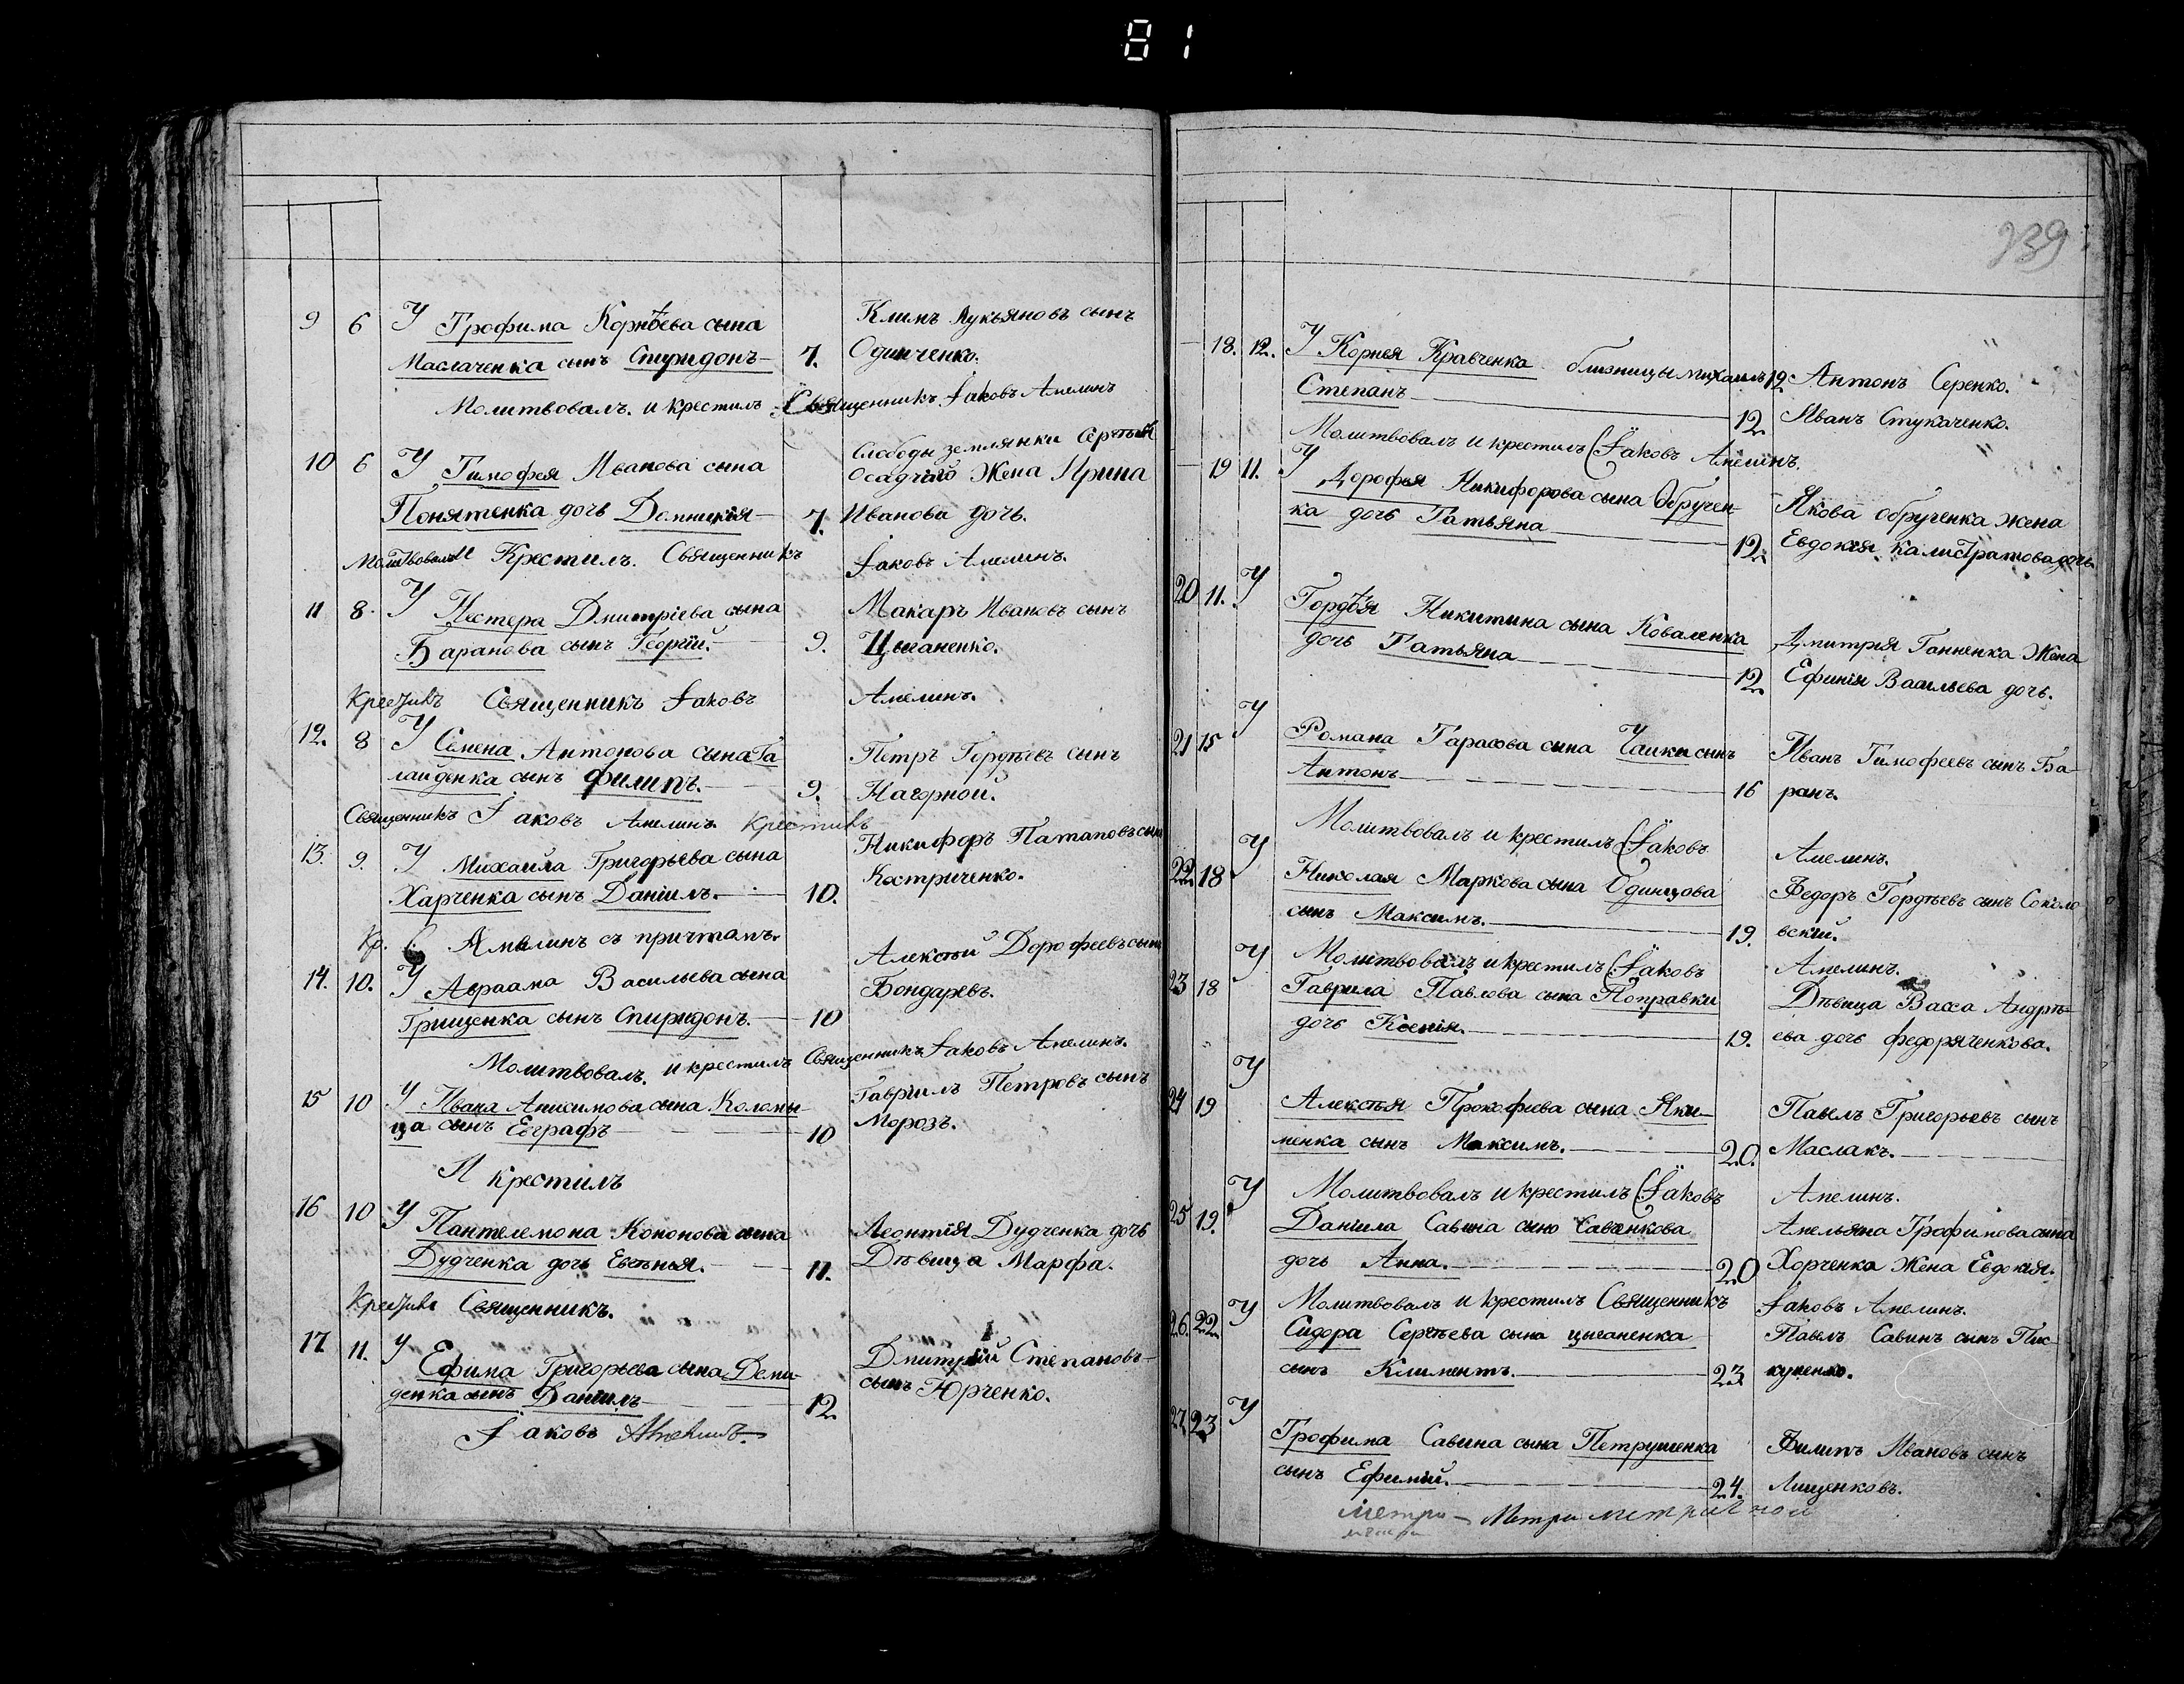 81
9 6 У Трофима Корнѣева сына Климъ Лукьяновъ сынъ
Маслаченка сынъ Спиридонъ 7. Одинченко.
Молитвовалъ и крестилъ Священникъ Іаковъ Амелинъ
Слободы землянки Сергѣя
10 6 У Тимофея Иванова сына Осадчаго Жена Ирина
Понятенка дочь Домникія 7. Иванова дочь.
Молитвовалъ И Крестилъ. Священникъ Іаковъ Амелинъ.
11 8 У Нестера Дмитріева сына Макаръ Ивановъ сынъ
Баранова сынъ Георгій. 9. Цыганенко.
Крестилъ Священникъ Іаковъ Амелинъ.
12. 8 У Семена Антонова сына Га Петръ Гордѣевъ сынъ
лайденка сынъ Филипъ. 9. Нагорной.
Священникъ Іаковъ Амелинъ. Крестилъ
13. 9. У Михаила Григорьева сына Никифоръ Патаповъ сынъ
Харченка сынъ Даніилъ. 10. Костриченко.
Кр. Амелинъ съ причтомъ.
14. 10. У Авраама Васильева сына Алексѣй Дорофеевъ сынъ
Грищенка сынъ Спиридонъ. 10 Бондаревъ.
Молитвовалъ и крестилъ Священникъ Іаковъ Амелинъ.
15 10 У Ивана Анисимова сына Коломы- Гавріилъ Петровъ сынъ
ца сынъ Евграфъ 10 Морозъ.
И крестилъ
16 10 У Пантелемона Кононова сына Леонтія Дудченка дочь
Дудченка дочь Евгѣнья. 11. Дѣвица Марфа.
Крестилъ Священникъ.
17 11. У Ефима Григорьева сына Деми- Дмитрій Степановъ
денка сынъ Даніилъ 12. сынъ Юрченко.
Іаковъ Амелинъ.
239
18. 12. У Корнея Кравченка близницы Михаилъ 12. Антонъ Серенко.
Степанъ 12. Иванъ Стукаченко.
Молитвовалъ и крестилъ Іаковъ Амелинъ.
19 11. У Дорофья Никифорова сына Обручен- Якова обрученка жена
ка дочь Татьяна 12. Евдокія калистратова дочь.
20 11. У Гордѣя Никитина сына Коваленка Дмитрія Ганненка Жена
дочь Татьяна 12. Ефимія Васильева дочь.
21 15 У Романа Тарасова сына Чайки сынъ Иванъ Тимофеевъ сынъ Ба-
Антонъ 16 ранъ.
Молитвовалъ и крестилъ Іаковъ Амелинъ.
22. 18 У Николая Маркова сына Одинцова Федоръ Гордѣевъ сынъ Соколо
сынъ Максимъ. 19. вскій.
Молитвовалъ и крестилъ Іаковъ Амелинъ.
23 18 У Гаврила Павлова сына Поправки Дѣвица Васса Андрѣ-
дочь Ксенія. 19. ева дочь Федоряченкова.
24 19 У Алексѣя Прокофиева сына Яки- Павелъ Григорьевъ сынъ
менка сынъ Максимъ. 20. Маслакъ.
Молитвовалъ и крестилъ Іаковъ Амелинъ.
25 19. У Даніила Савина сына Савченкова Амельяна Трофимова сына
дочь Анна. 20 Хорченка Жена Евдокія.
Молитвовалъ и крестилъ Священникъ Іаковъ Амелинъ.
26. 22 У Сидора Сергѣева сына цыганенка Павелъ Савинъ сынъ Пис-
сынъ Климентъ. 23. куненко.
27. 23 У Трофима Савина сына Петрушенка Филипъ Ивановъ сынъ
сынъ Ефимій. 24. Лищенковъ.
метри Метри метричной